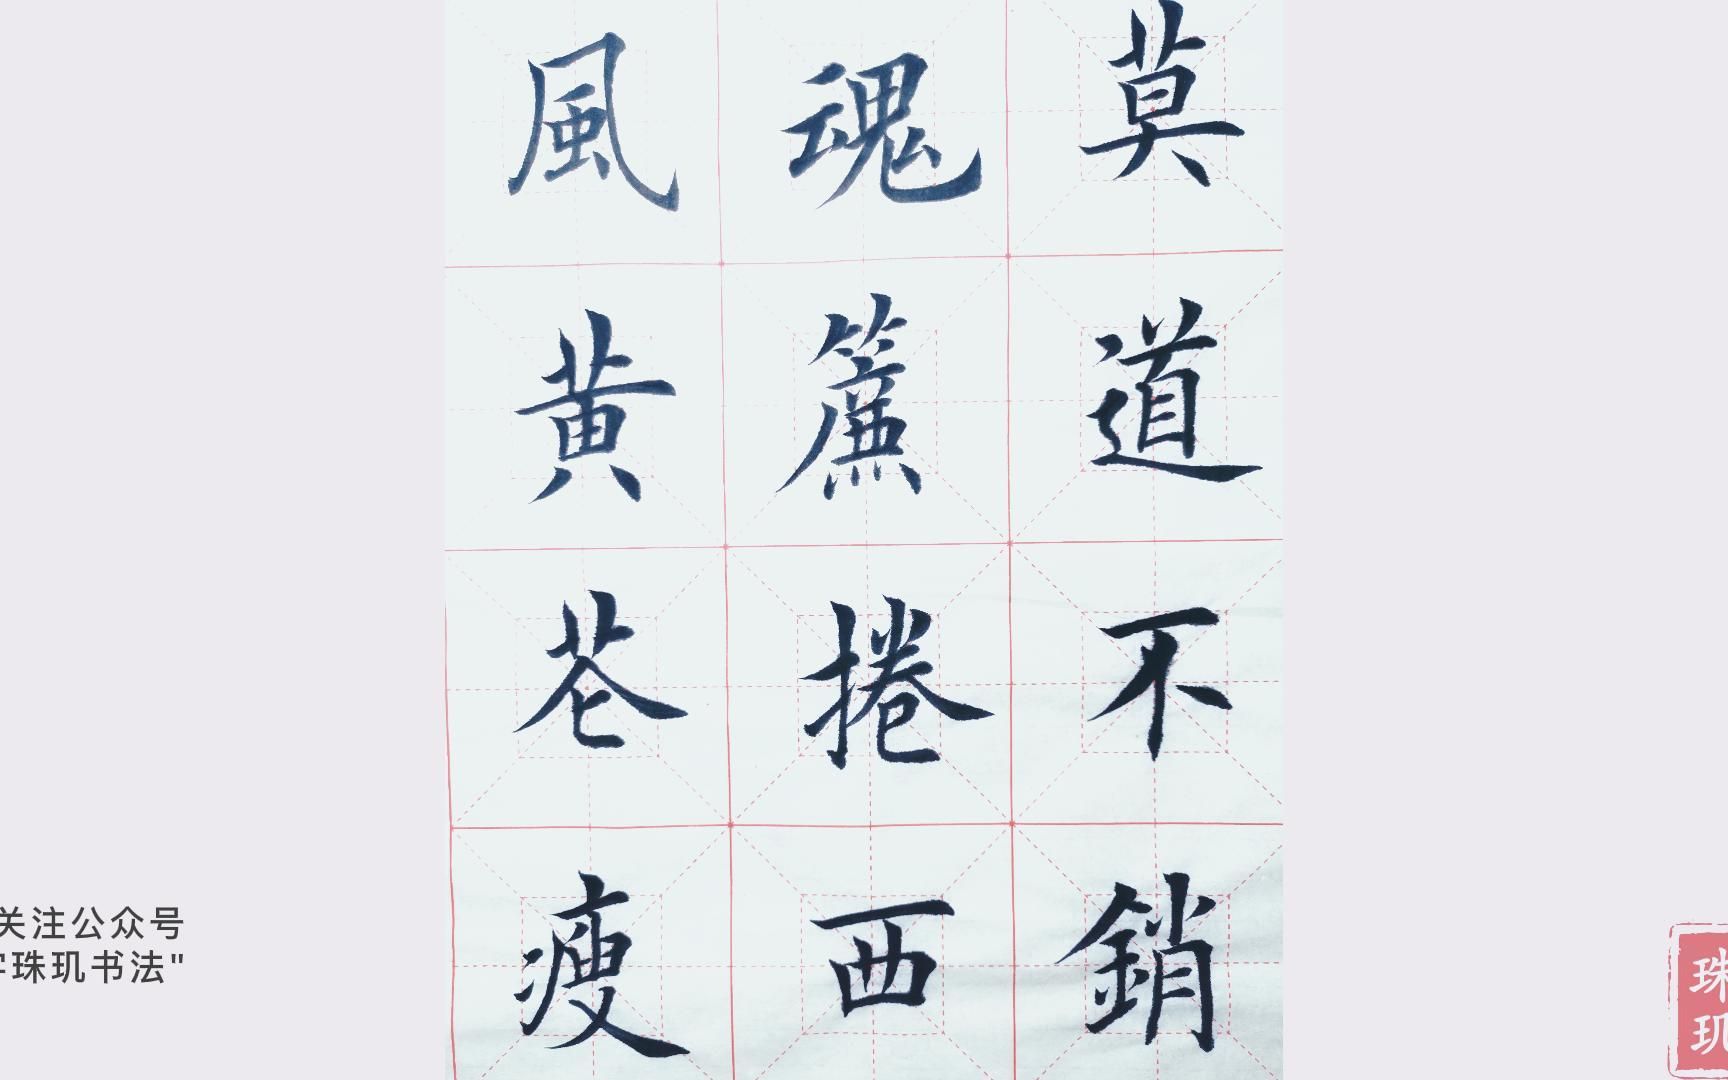 莫道不銷
魂簾捲西
風黃花瘦
关注公众号
珠玑书法"
珠
玑